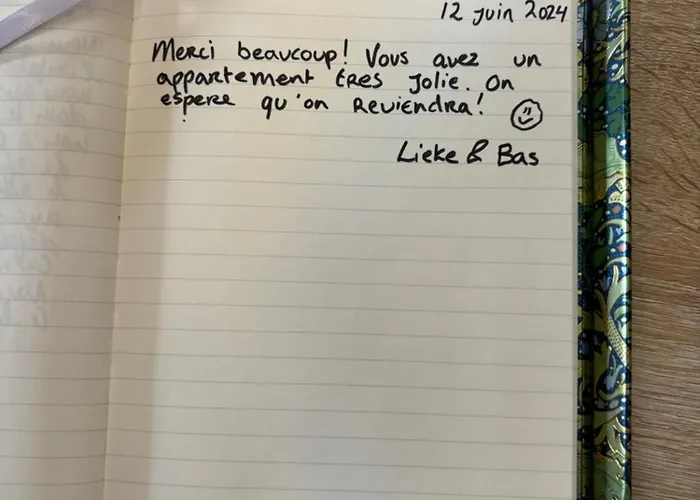 12 juin 2024
Merci beaucoup! Vous avez un
appartement tres jolie. On
espere qu'on reviendra!
Lieke & Bas